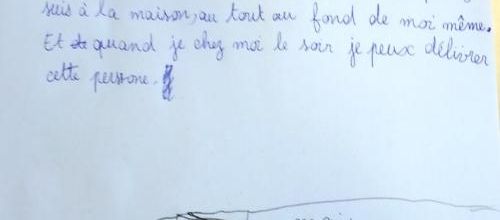 suis à la maison, au tout au fond de moi même.
Et quand je chez moi le soir je peux délivrer
cette persone.